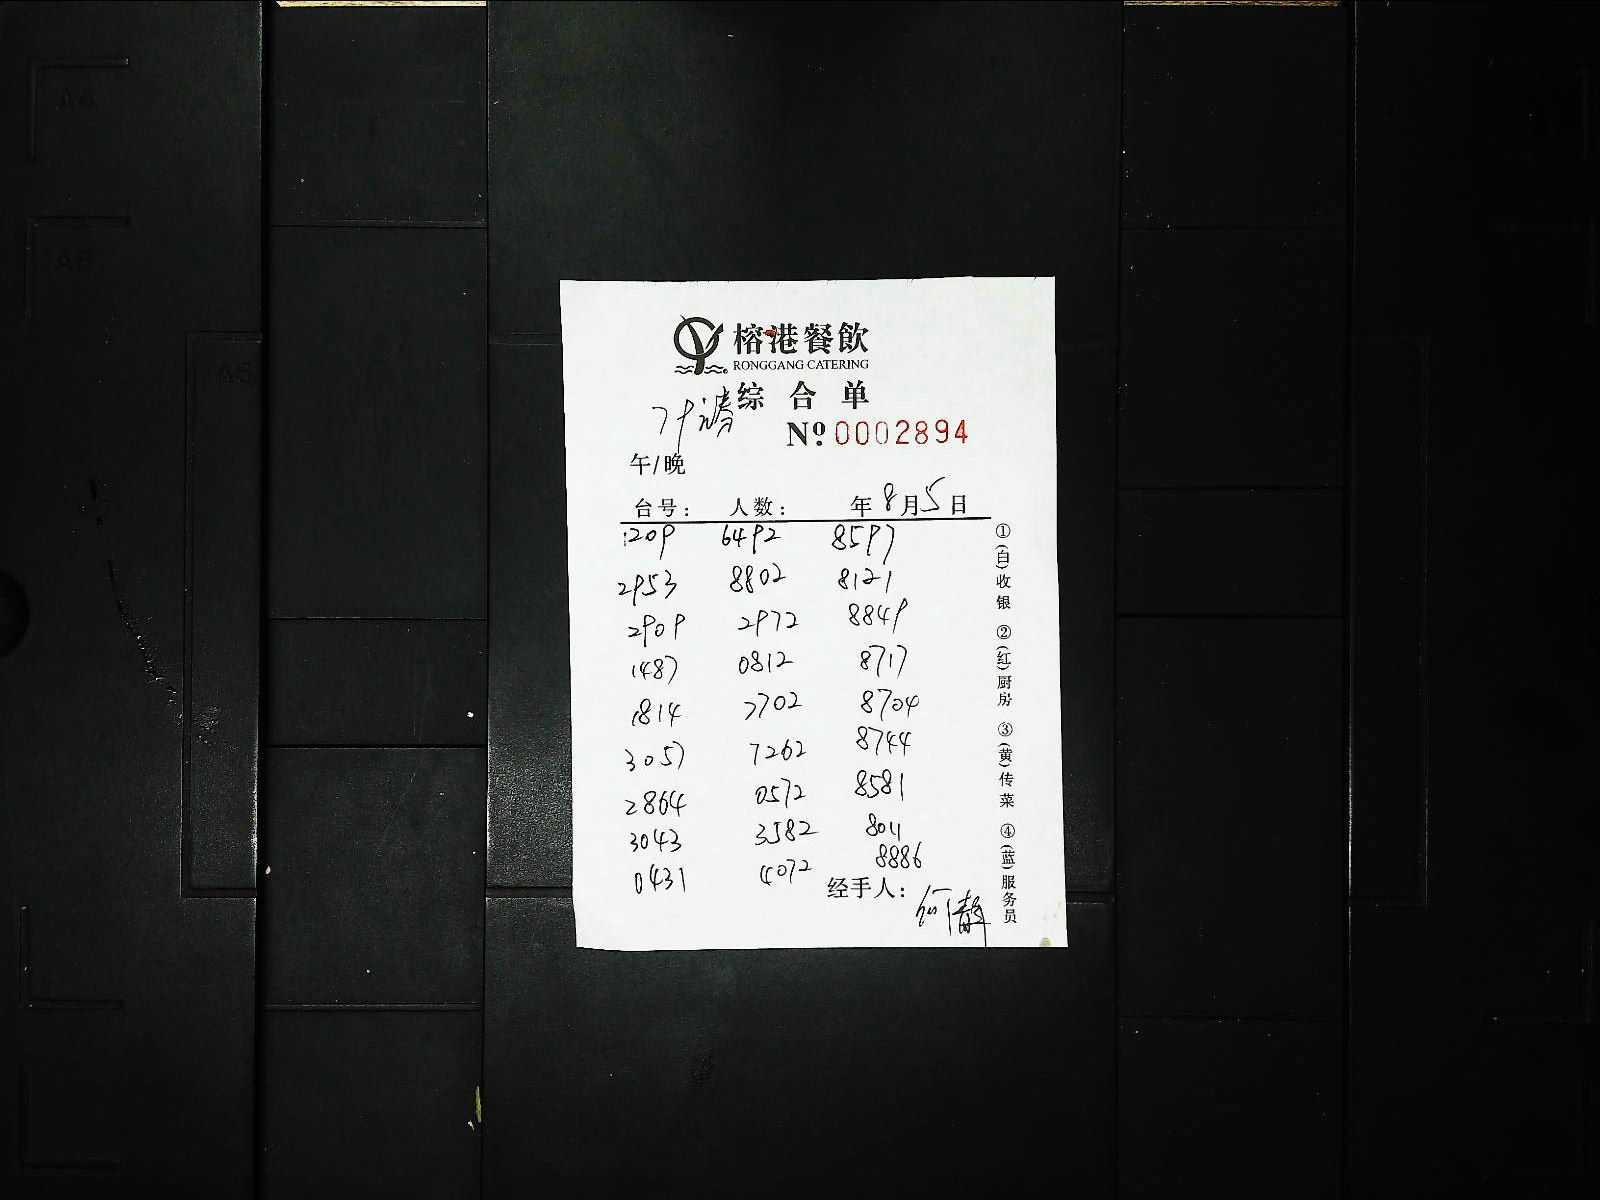 榕港餐飲
RONGGANG CATERING
综合单
№ 0002894
午/晚
台号： 人数： 年8月5日
1209 6492 8597
2953 8802 8121
2909 2972 8849
1487 0812 8717
1814 7702 8704
3057 7262 8744
2864 0572 8581
3043 3582 8011
0431 4072 8886
经手人：何静
①(白)收银 ②(红)厨房 ③(黄)传菜 ④(蓝)服务员
A5